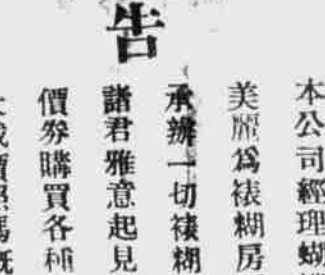 告
本公司經理蝴
美麗爲裱糊房
承辦一切裱糊
諸君雅意起見
價券購買各種